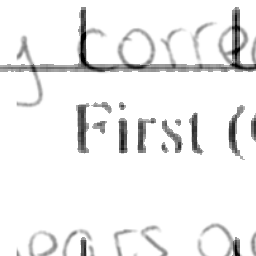 y corre
First (
ears a